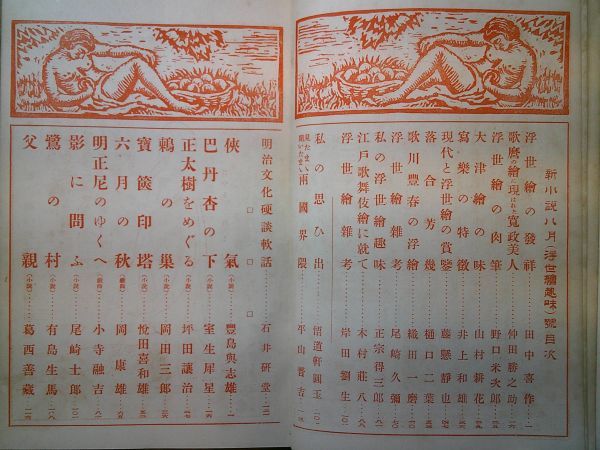 新小説八月(浮世繪趣味)號目次
浮世繪の發祥……田中喜作…一
浮世繪の肉筆……野口米次郎
歌麿の繪に現はれた寛政美人……仲田勝之助
大津繪の味……山村耕花
寫樂の特徴……井上和雄
現代と浮世繪の賞鑒……藤懸靜也
落合芳幾……樋口二葉
歌川豊春の浮繪……織田一磨
浮世繪雜考……尾崎久彌
私の浮世繪趣味……正宗得三郎
江戸歌舞伎繪に就て……木村莊八
浮世繪雜考……岸田劉生
私の思ひ出……悟道軒圓玉
見たまい聞いたまい兩國界隈……平山晋吉
明治文化硬談軟話……石井研堂
俠氣(小説)……豐島與志雄
巴丹杏の下(小説)……室生犀星
正太樹をめぐる(小説)……坪田讓治
鶉の巢(小説)……岡田三郎
寶篋印塔(小説)……悅田喜和雄
六月の秋(戲曲)……岡康雄
明正尼のゆくへ(戲曲)……小寺融吉
影に問ふ(小説)……尾崎士郎
鷺の村(小説)……有島生馬
父親(小説)……葛西善藏